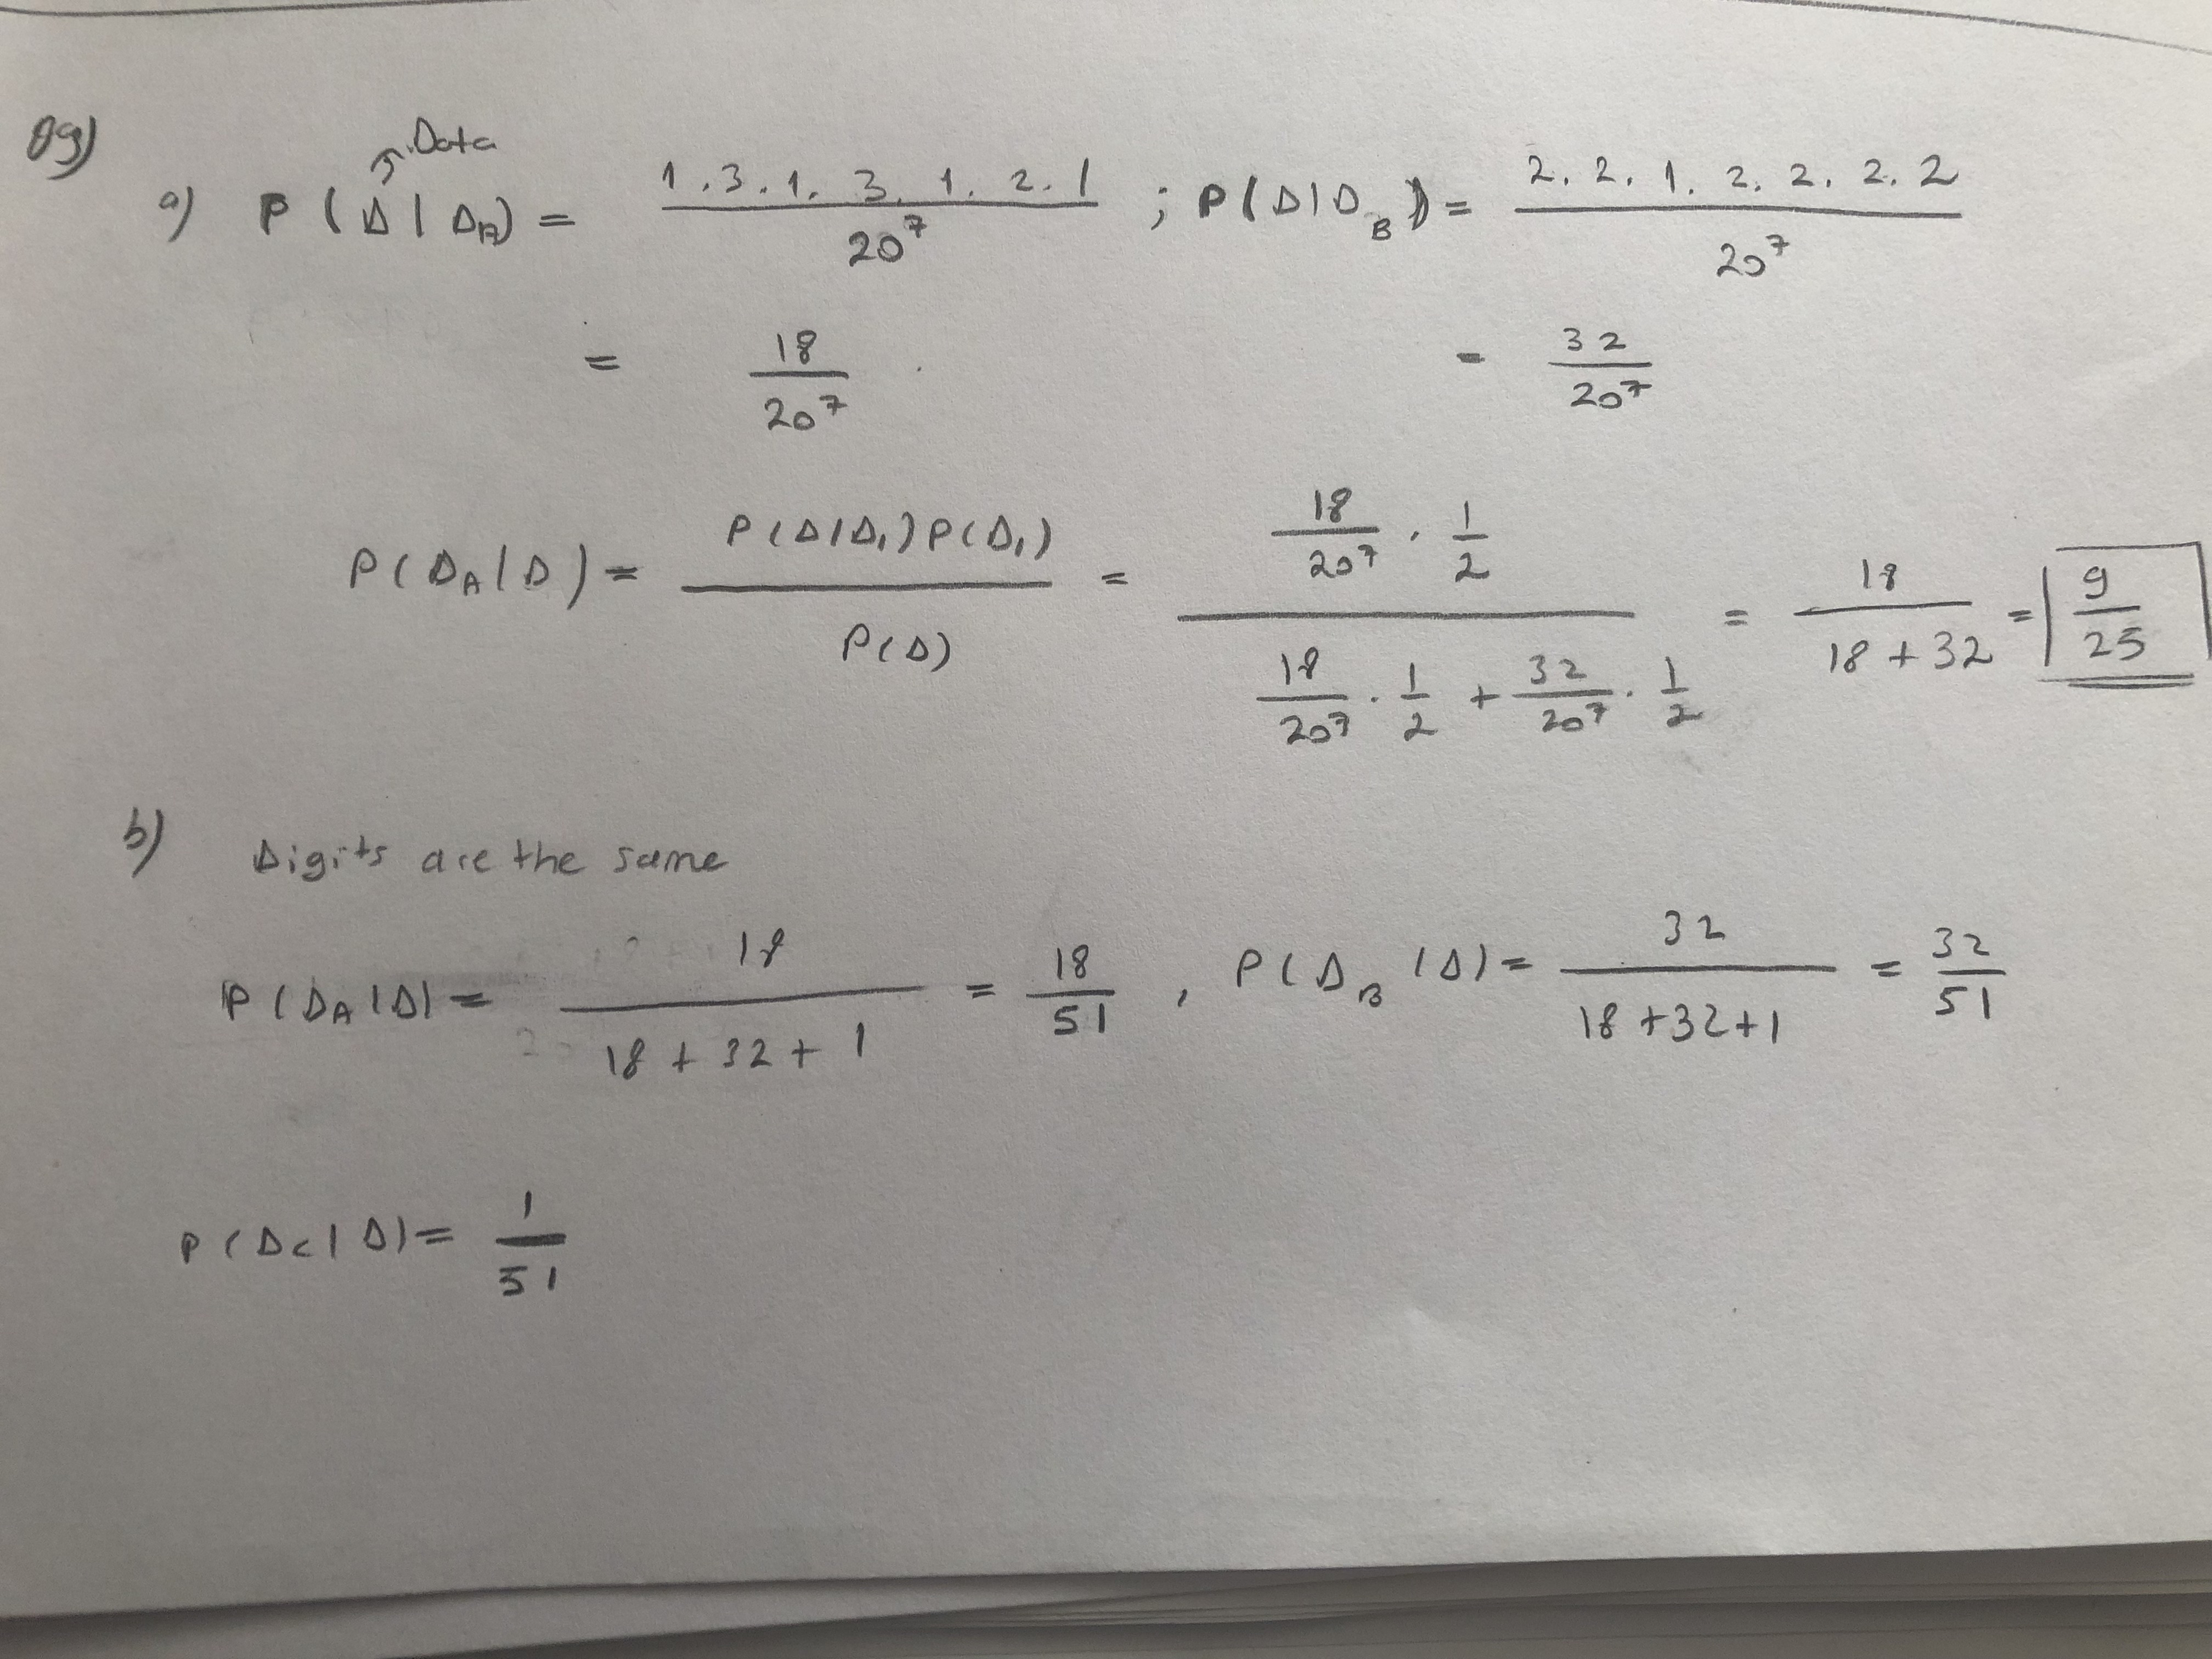 09)
Data
a) P(D | D_A) = 1.3.1.3.1.2.1 / 20^7 ; P(D|D_B) = 2.2.1.2.2.2.2 / 20^7
= 18 / 20^7 = 32 / 20^7
P(D_A|D) = P(D|D_1)P(D_1) / P(D) = (18/20^7 . 1/2) / (18/20^7 . 1/2 + 32/20^7 . 1/2) = 18 / (18+32) = 9/25
b) Digits are the same
P(D_A|D) = 18 / (18+32+1) = 18/51 , P(D_B|D) = 32 / (18+32+1) = 32/51
P(D_C|D) = 1/51